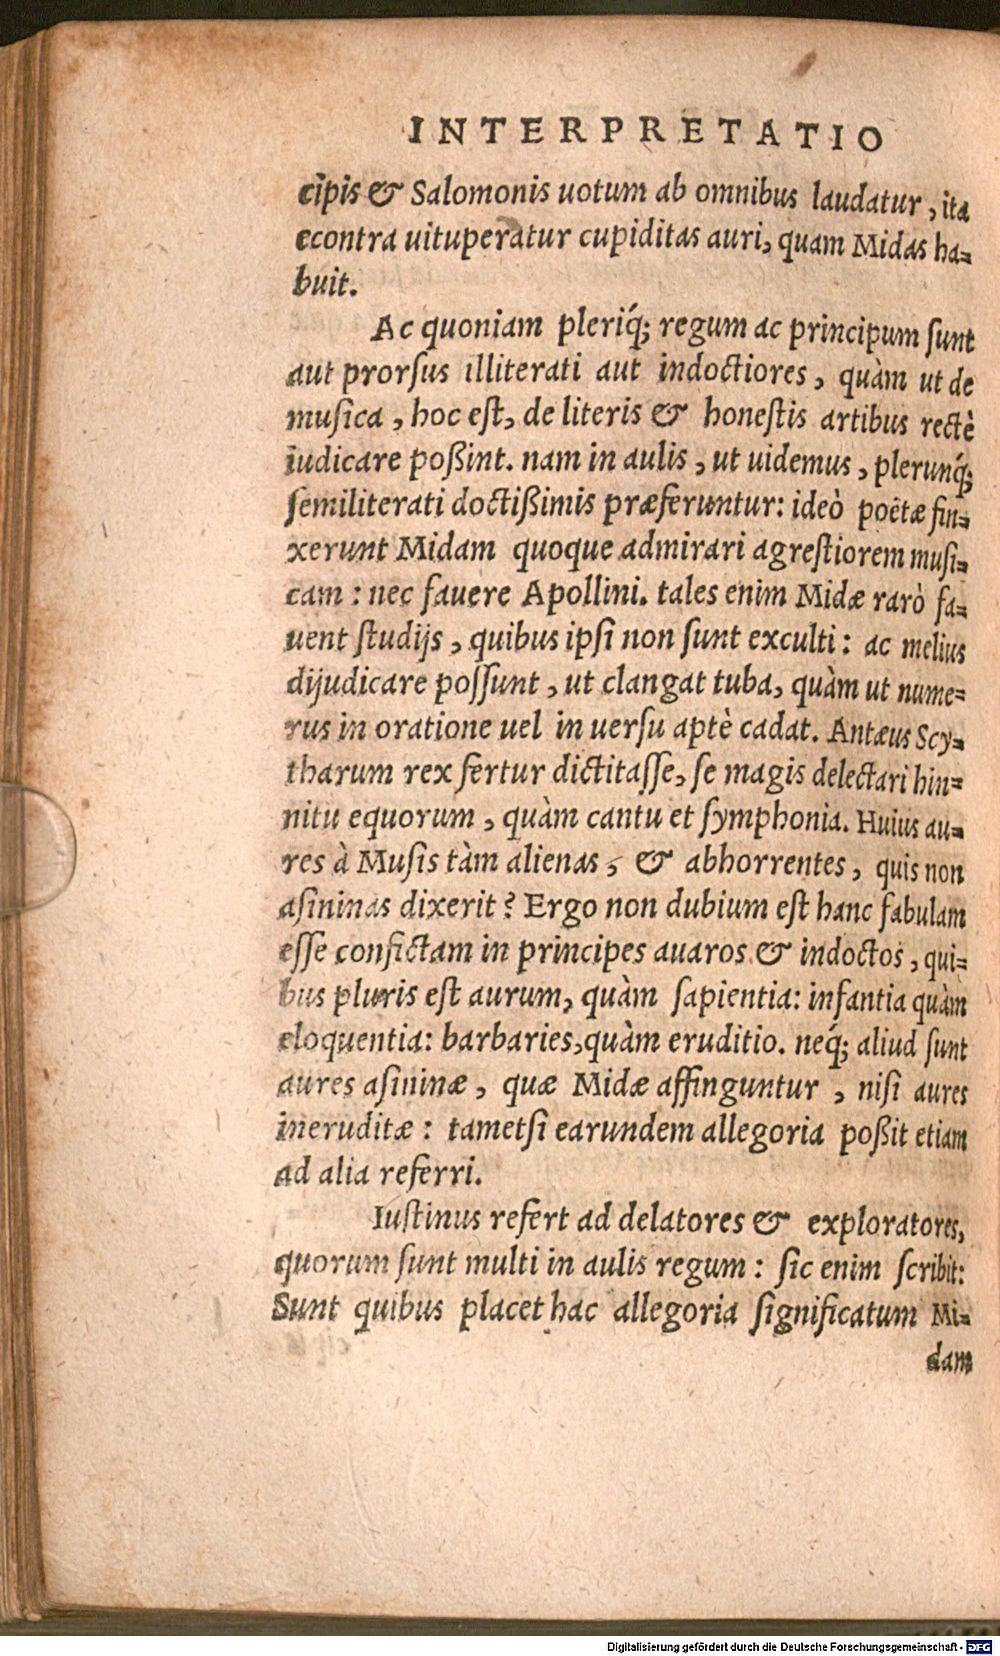 INTERPRETATIO
cipis & Salomonis uotum ab omnibus laudatur, ita
econtra uituperatur cupiditas auri, quam Midas ha=
buit.
Ac quoniam pleriq́; regum ac principum ſunt
aut prorſus illiterati aut indoctiores, quàm ut de
muſica, hoc eſt, de literis & honeſtis artibus rectè
iudicare poßint. nam in aulis, ut uidemus, plerunq́;
ſemiliterati doctißimis præferuntur: ideò poëtæ fin=
xerunt Midam quoque admirari agreſtiorem muſi=
cam: nec fauere Apollini. tales enim Midæ rarò fa=
uent ſtudijs, quibus ipſi non ſunt exculti: ac melius
dijudicare poſſunt, ut clangat tuba, quàm ut nume=
rus in oratione uel in uerſu aptè cadat. Antæus Scy=
tharum rex fertur dictitaſſe, ſe magis delectari hin=
nitu equorum, quàm cantu et ſymphonia. Huius au=
res à Muſis tàm alienas, & abhorrentes, quis non
aſininas dixerit? Ergo non dubium eſt hanc fabulam
eſſe confictam in principes auaros & indoctos, qui=
bus pluris eſt aurum, quàm ſapientia: infantia quàm
eloquentia: barbaries, quàm eruditio. neq́; aliud ſunt
aures aſininæ, quæ Midæ affinguntur, niſi aures
ineruditæ: tametſi earundem allegoria poßit etiam
ad alia referri.
Iuſtinus refert ad delatores & exploratores,
quorum ſunt multi in aulis regum: ſic enim ſcribit:
Sunt quibus placet hac allegoria ſignificatum Mi=
dam
Digitalisierung gefördert durch die Deutsche Forschungsgemeinschaft - DFG